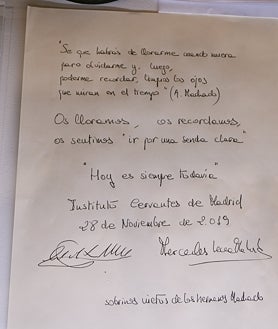 "Se que habrás de llorarme cuando muera
para olvidarme y, luego,
poderme recordar, limpios los ojos
que miran en el tiempo" (A. Machado)
Os lloramos, os recordamos,
os sentimos "ir por una senda clara"
"Hoy es siempre todavía"
Instituto Cervantes de Madrid
28 de Noviembre de 2.019
Mercedes
sobrinos nietos de los hermanos Machado